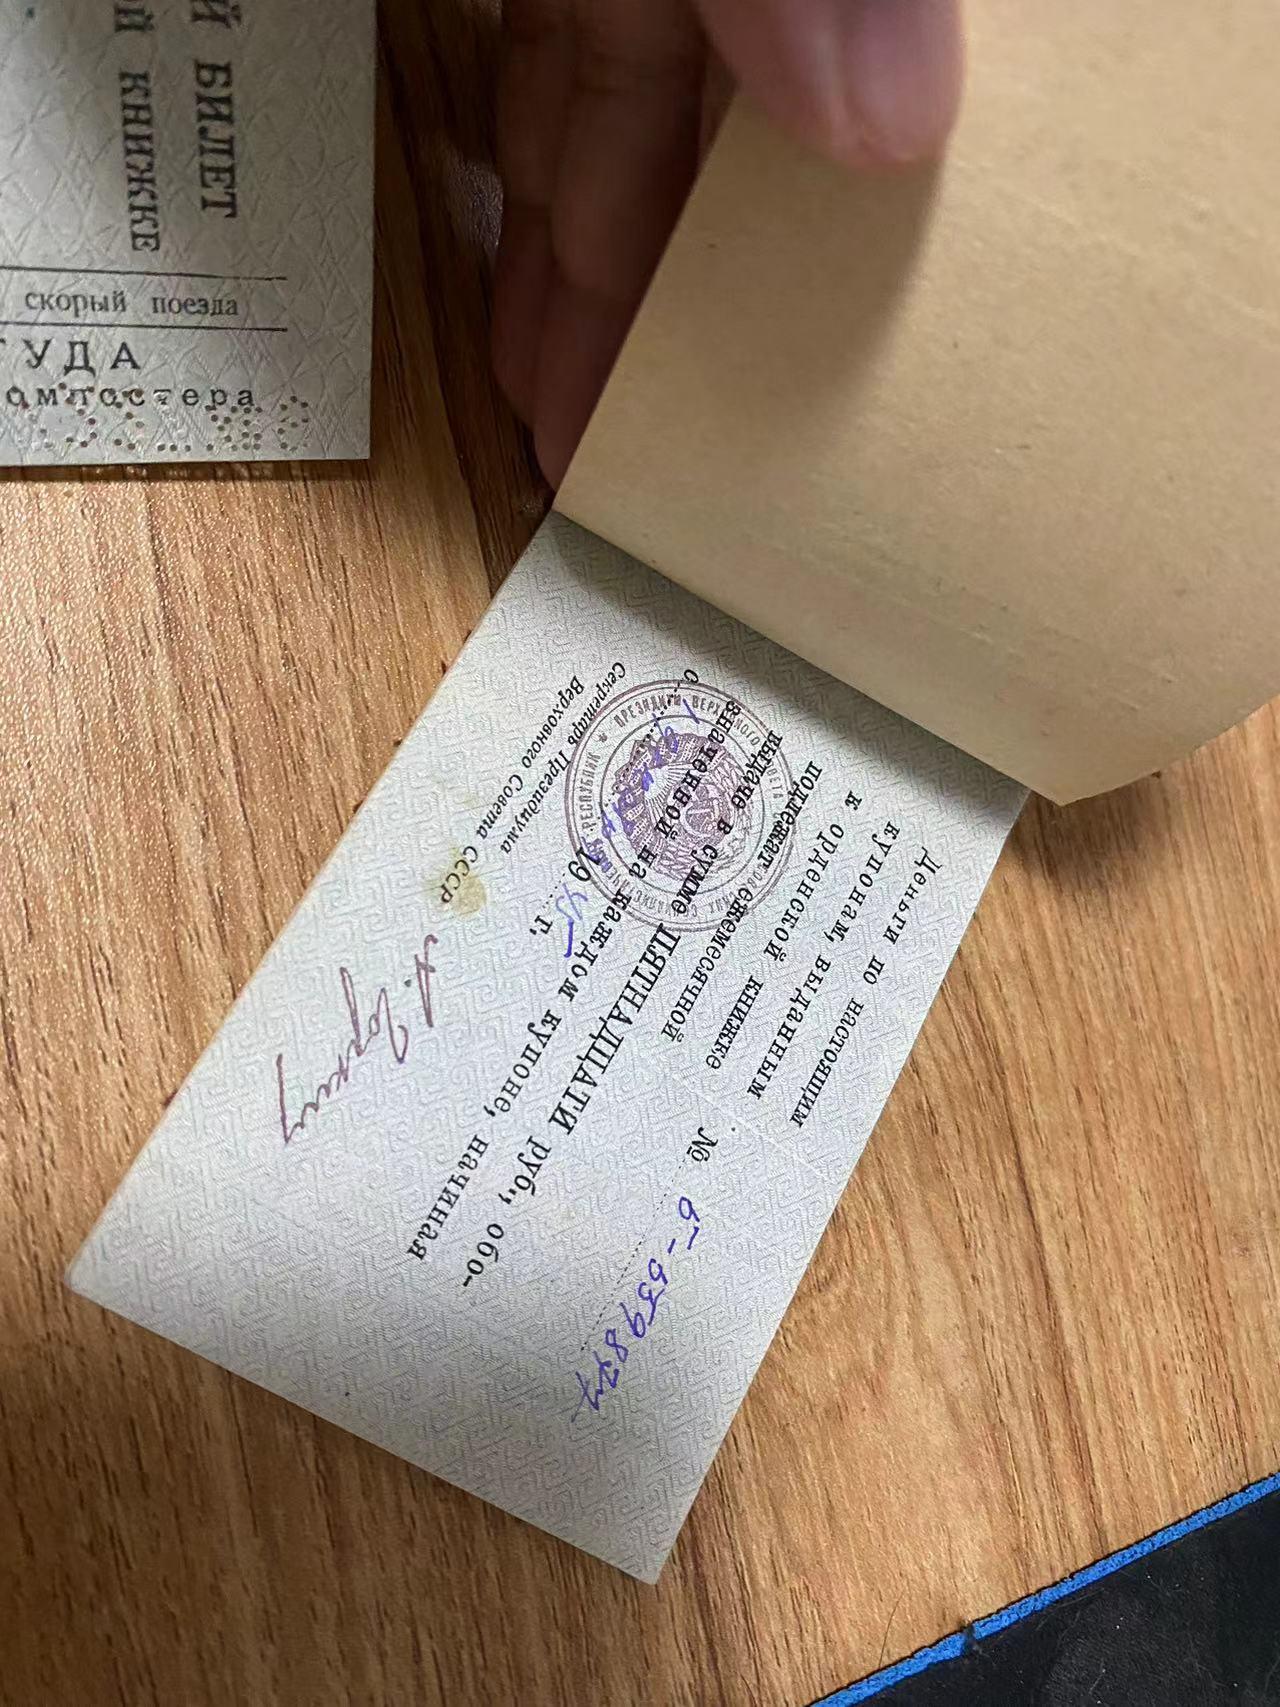 Й БИЛЕТ
ОЙ КНИЖКЕ
скорый поезда
ТУДА
омпостера
Деньги по настоящим
купонам, выданным
к орденской книжке
№ Б-539877
подлежат ежемесячной
выдаче в сумме ПЯТНАДЦАТИ руб., обо-
значенной на каждом купоне, начиная
с 1 19 45 г.
Секретарь Президиума
Верховного Совета СССР
А. Горкин
ПРЕЗИДИУМ ВЕРХОВНОГО СОВЕТА